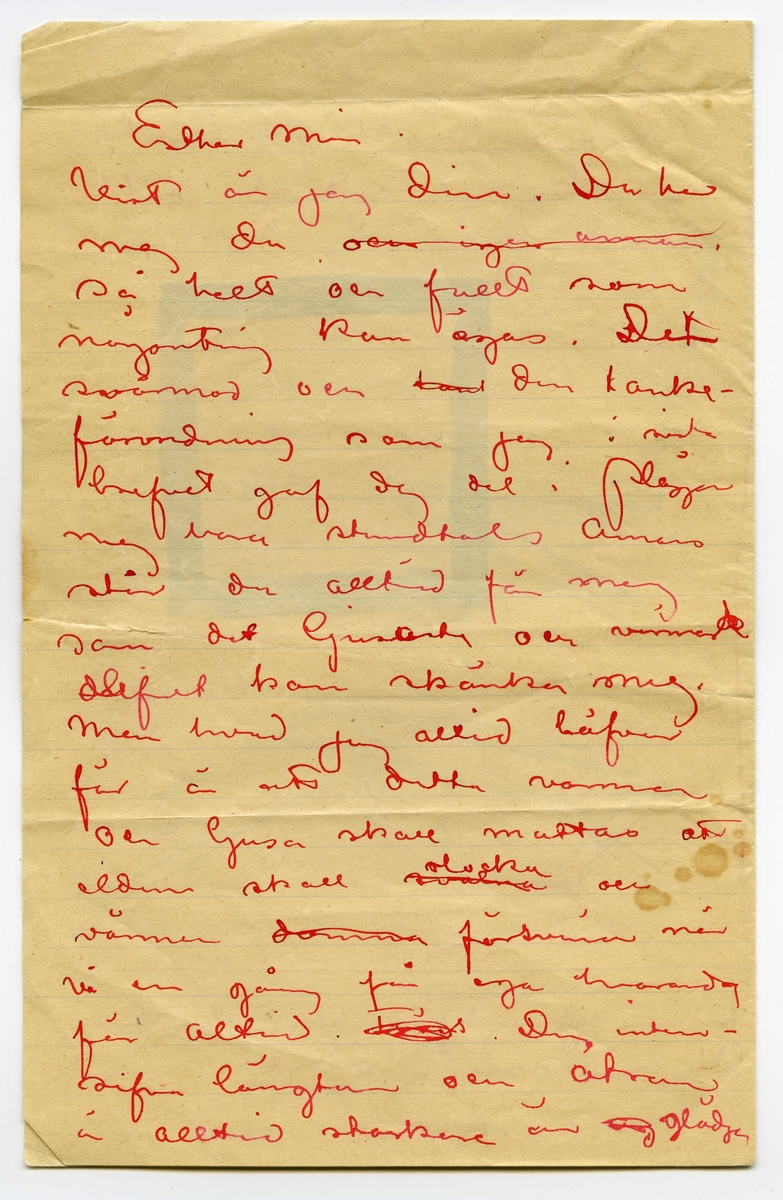 Esther Min.
Visst är jag din. Du har
mig du och ingen annan.
så helt och fullt som
någonting kan ägas. Det
svårmod och den tanke-
förordning som jag i sista
brefvet gaf dig del i plågar
mig bara stundtals annars
står du alltid för mig
som det ljusaste och varmaste
lifvet kan skänka mig.
Men hvad jag alltid bäfvar
för är att detta varma
och ljusa skall mattas att
elden skall svalna slockna och
värmen domna försvinna när
vi en gång få ega hvarandra
för alltid. Den inten-
sifva längtan och åtrån
är alltid starkare än glädjen